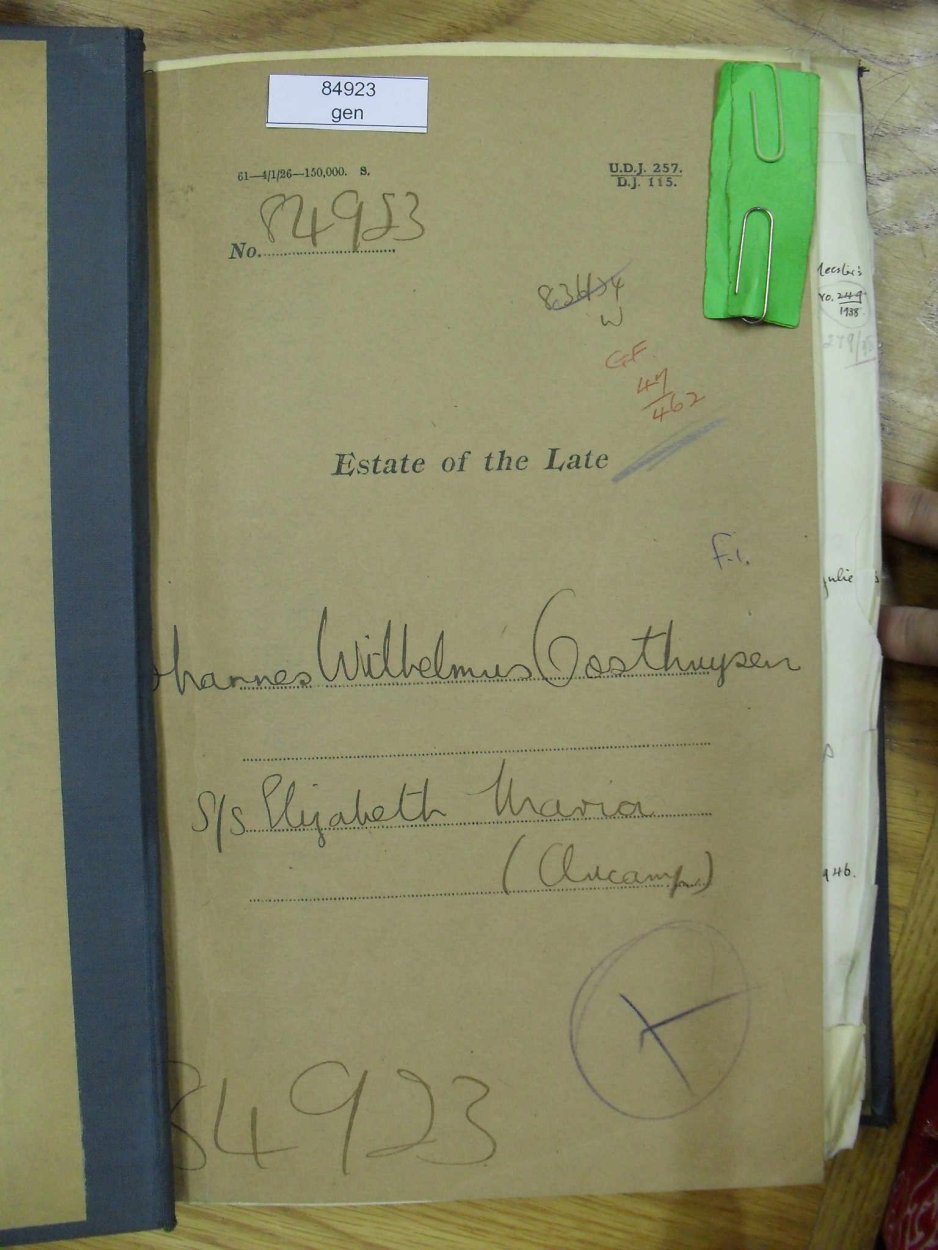 84923
gen
61—4/1/26—150,000. S.
U.D.J. 257.
D.J. 115.
No. 84923
W
G.F.
47
462
Estate of the Late
F.i.
ohannes Wilhelmus Oosthuysen
S/S Elizabeth Maria
(Aucamp)
84923
No. 249
1938
279/
julie
946.